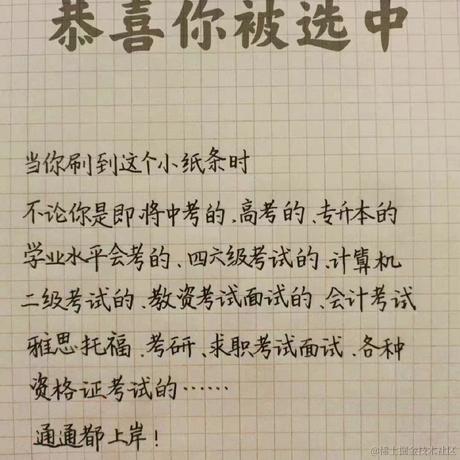 恭喜你被选中
当你刷到这个小纸条时
不论你是即将中考的、高考的、专升本的
学业水平会考的、四六级考试的、计算机
二级考试的、教资考试面试的、会计考试
雅思托福、考研、求职考试面试、各种
资格证考试的……
通通都上岸！
@稀土掘金技术社区